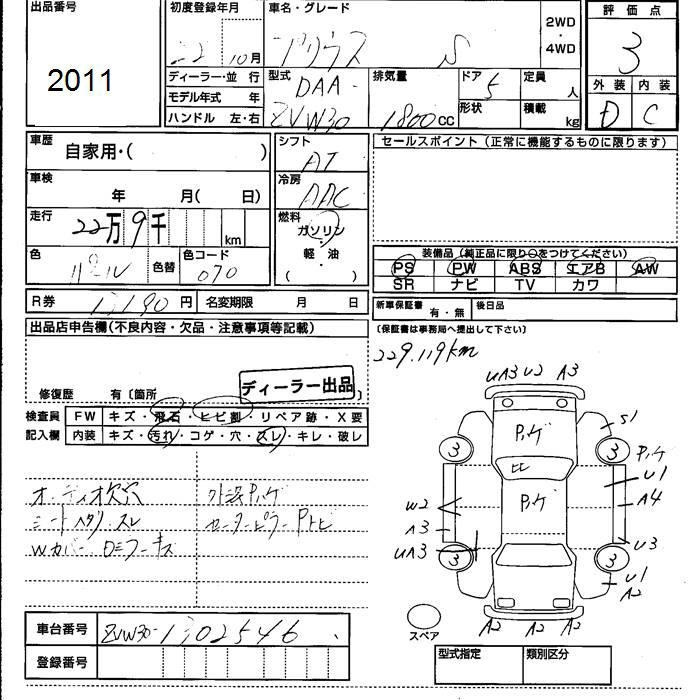 出品番号
2011
初度登録年月
22年10月
車名・グレード
プリウス S
2WD
・
4WD
評価点
3
外装 内装
D C
ディーラー・並行
モデル年式 年
ハンドル 左・右
型式
DAA-
ZVW30
排気量
1800cc
ドア
5
形状
定員
人
積載
kg
車歴
自家用・( )
車検
年 月( 日)
走行
22万9千 km
色
パール
色替
色コード
070
シフト
AT
冷房
AAC
燃料
ガソリン
・
軽油
( )
セールスポイント(正常に機能するものに限ります)
装備品(純正品に限り○をつけてください)
PS PW ABS エアB AW
SR ナビ TV カワ
R券 円
名変期限 月 日
新車保証書
有・無
後日品
(保証書は事務局へ提出して下さい)
出品店申告欄(不良内容・欠品・注意事項等記載)
修復歴 有〔箇所 〕
ディーラー出品
229.119km
検査員
記入欄
FW キズ・飛石・ヒビ割・リペア跡・X要
内装 キズ・汚れ・コゲ・穴・スレ・キレ・破レ
オーディオ欠 穴
シートヘタリ、スレ
外装P、ハゲ
センターピラーPトビ
UA3 U2 A3
P、ハゲ
S1
3
3
P、ハゲ
U1
ヒビ
P、ハゲ
W2
A4
A3
UA3
U3
3
3
U1
A2
A2 A2 A2
スペア
車台番号 ZVW30-1302546
登録番号
型式指定 類別区分